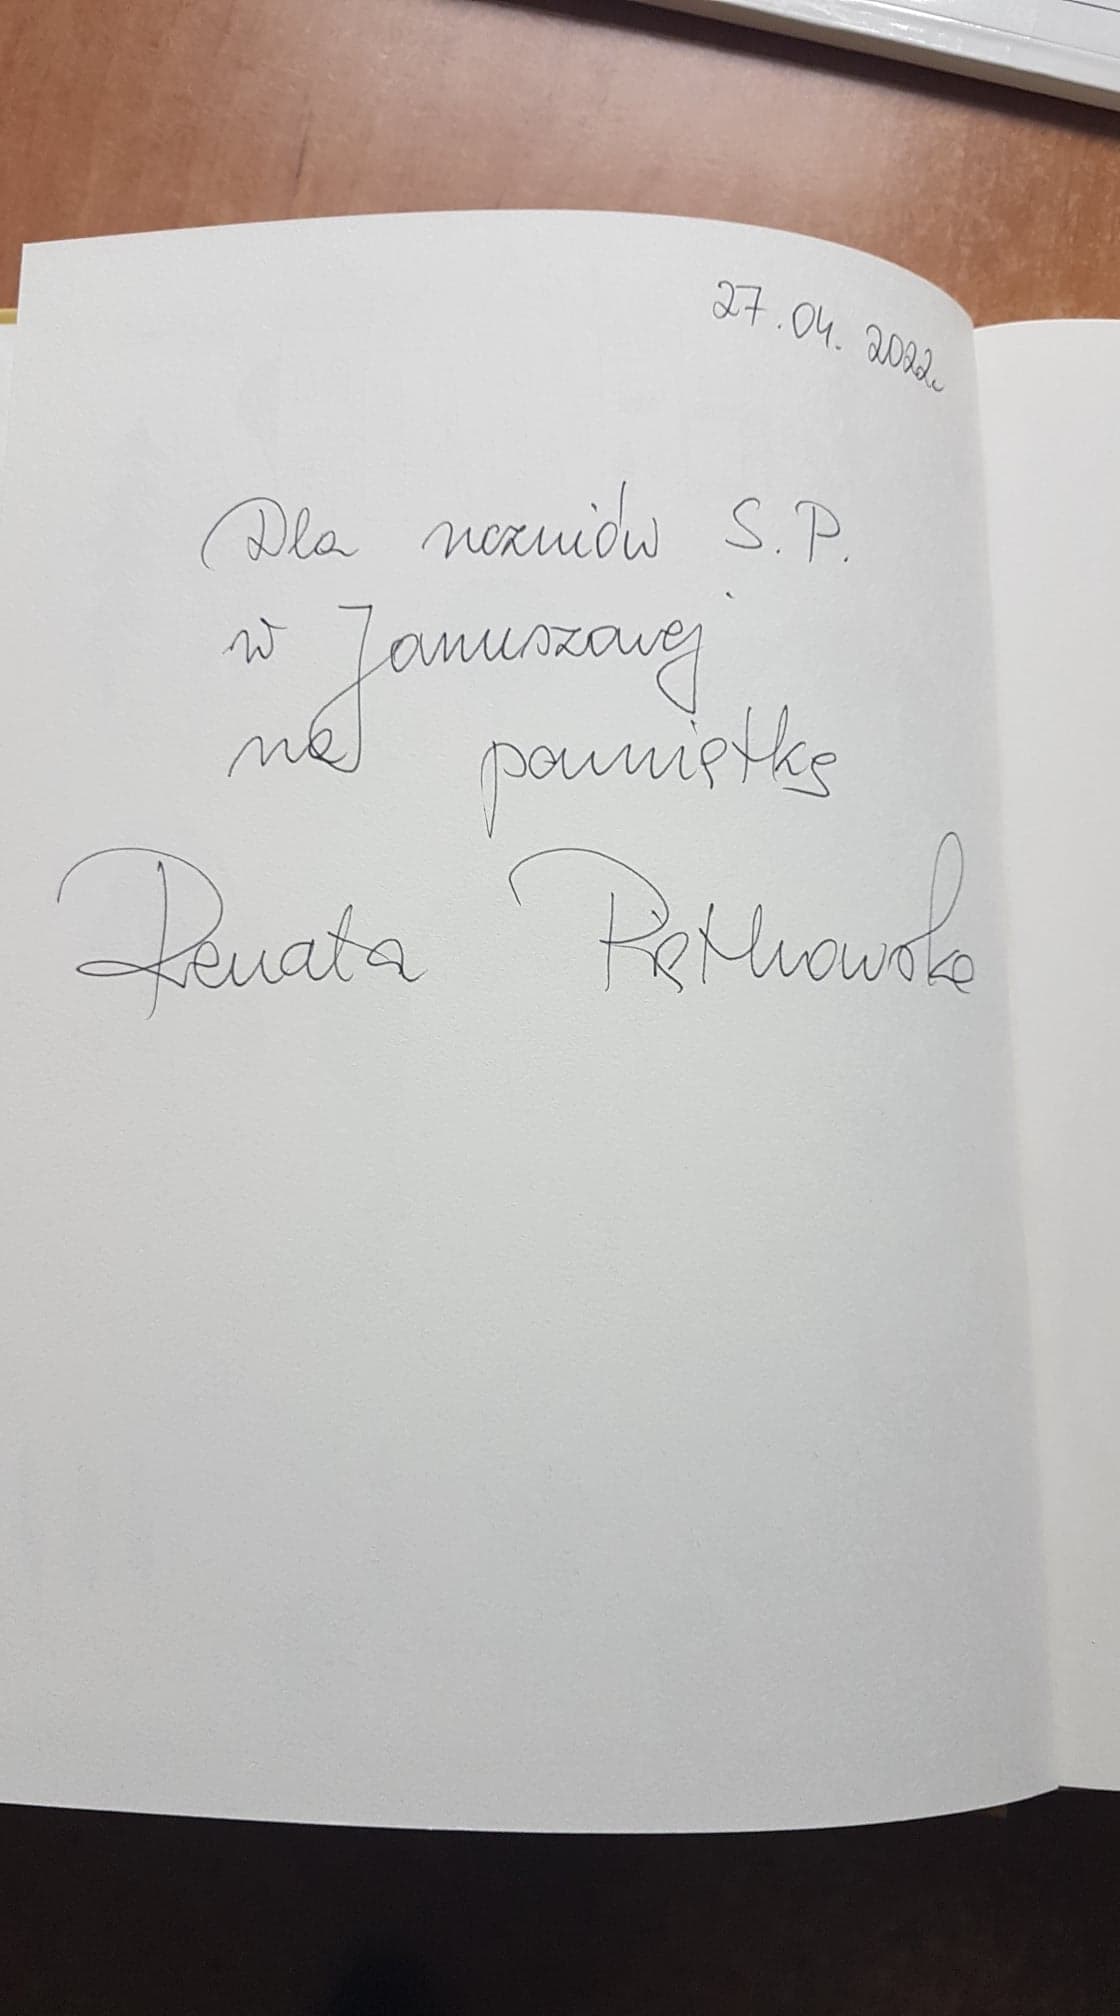 27.04.2022r.
Dla uczniów S.P.
w Januszowej
na pamiątkę
Renata Piątkowska